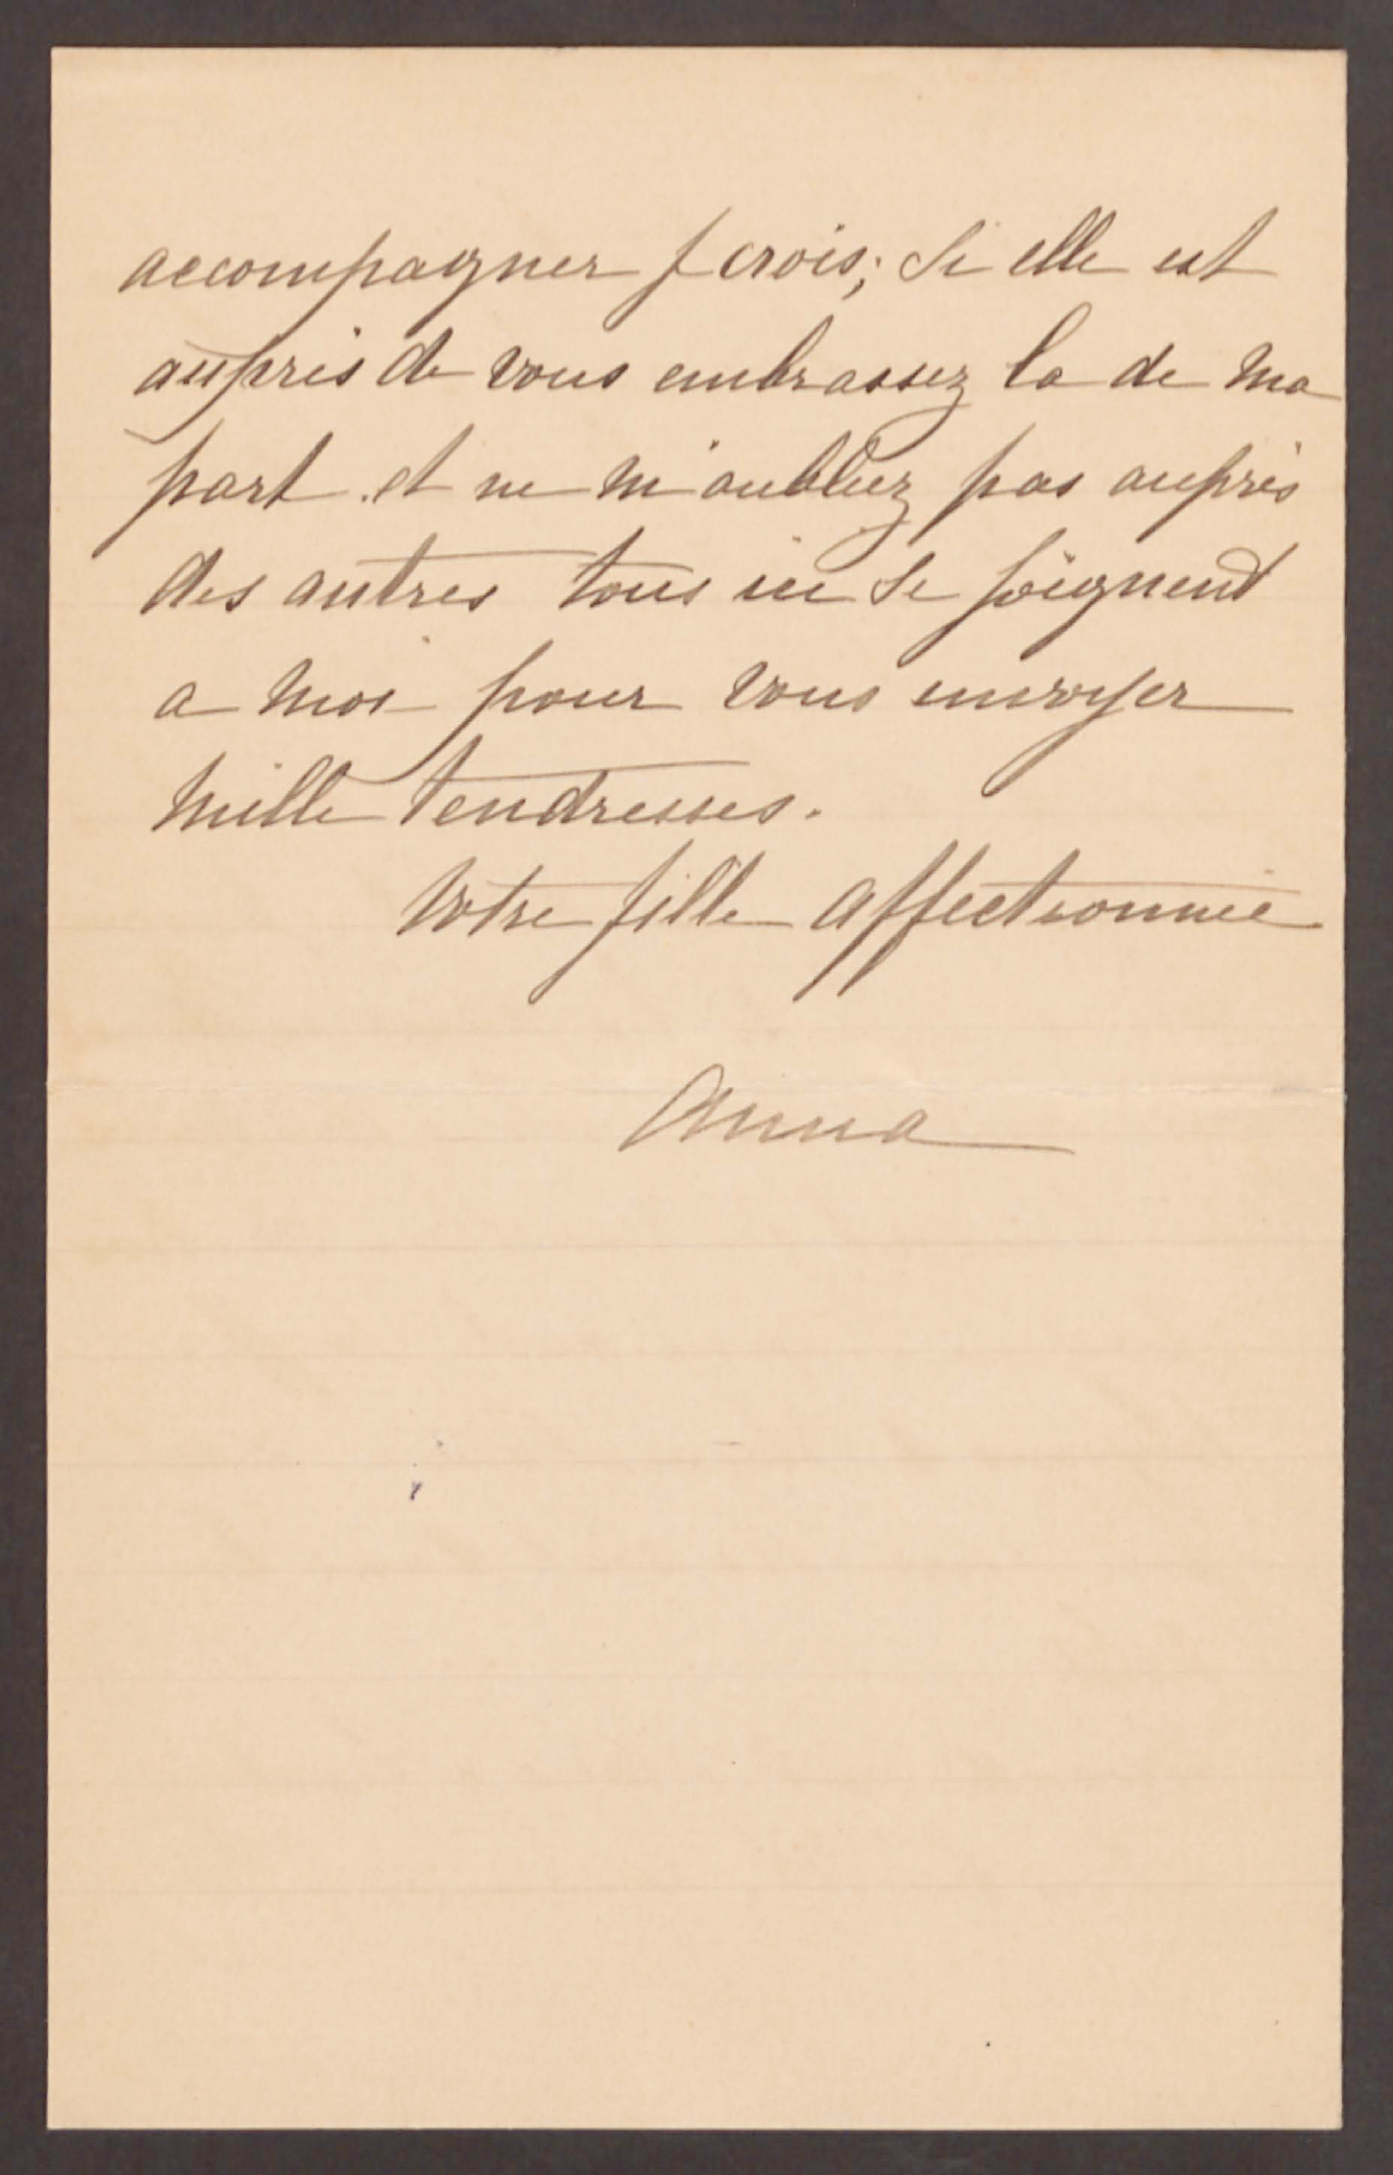 accompagner j crois; Si elle est
auprès de vous embrassez la de ma
part. et ne m'oubliez pas auprès
des autres tous ici se joignent
a moi pour vous envoyer
mille tendresses.
Votre fille affectionnée
Anna